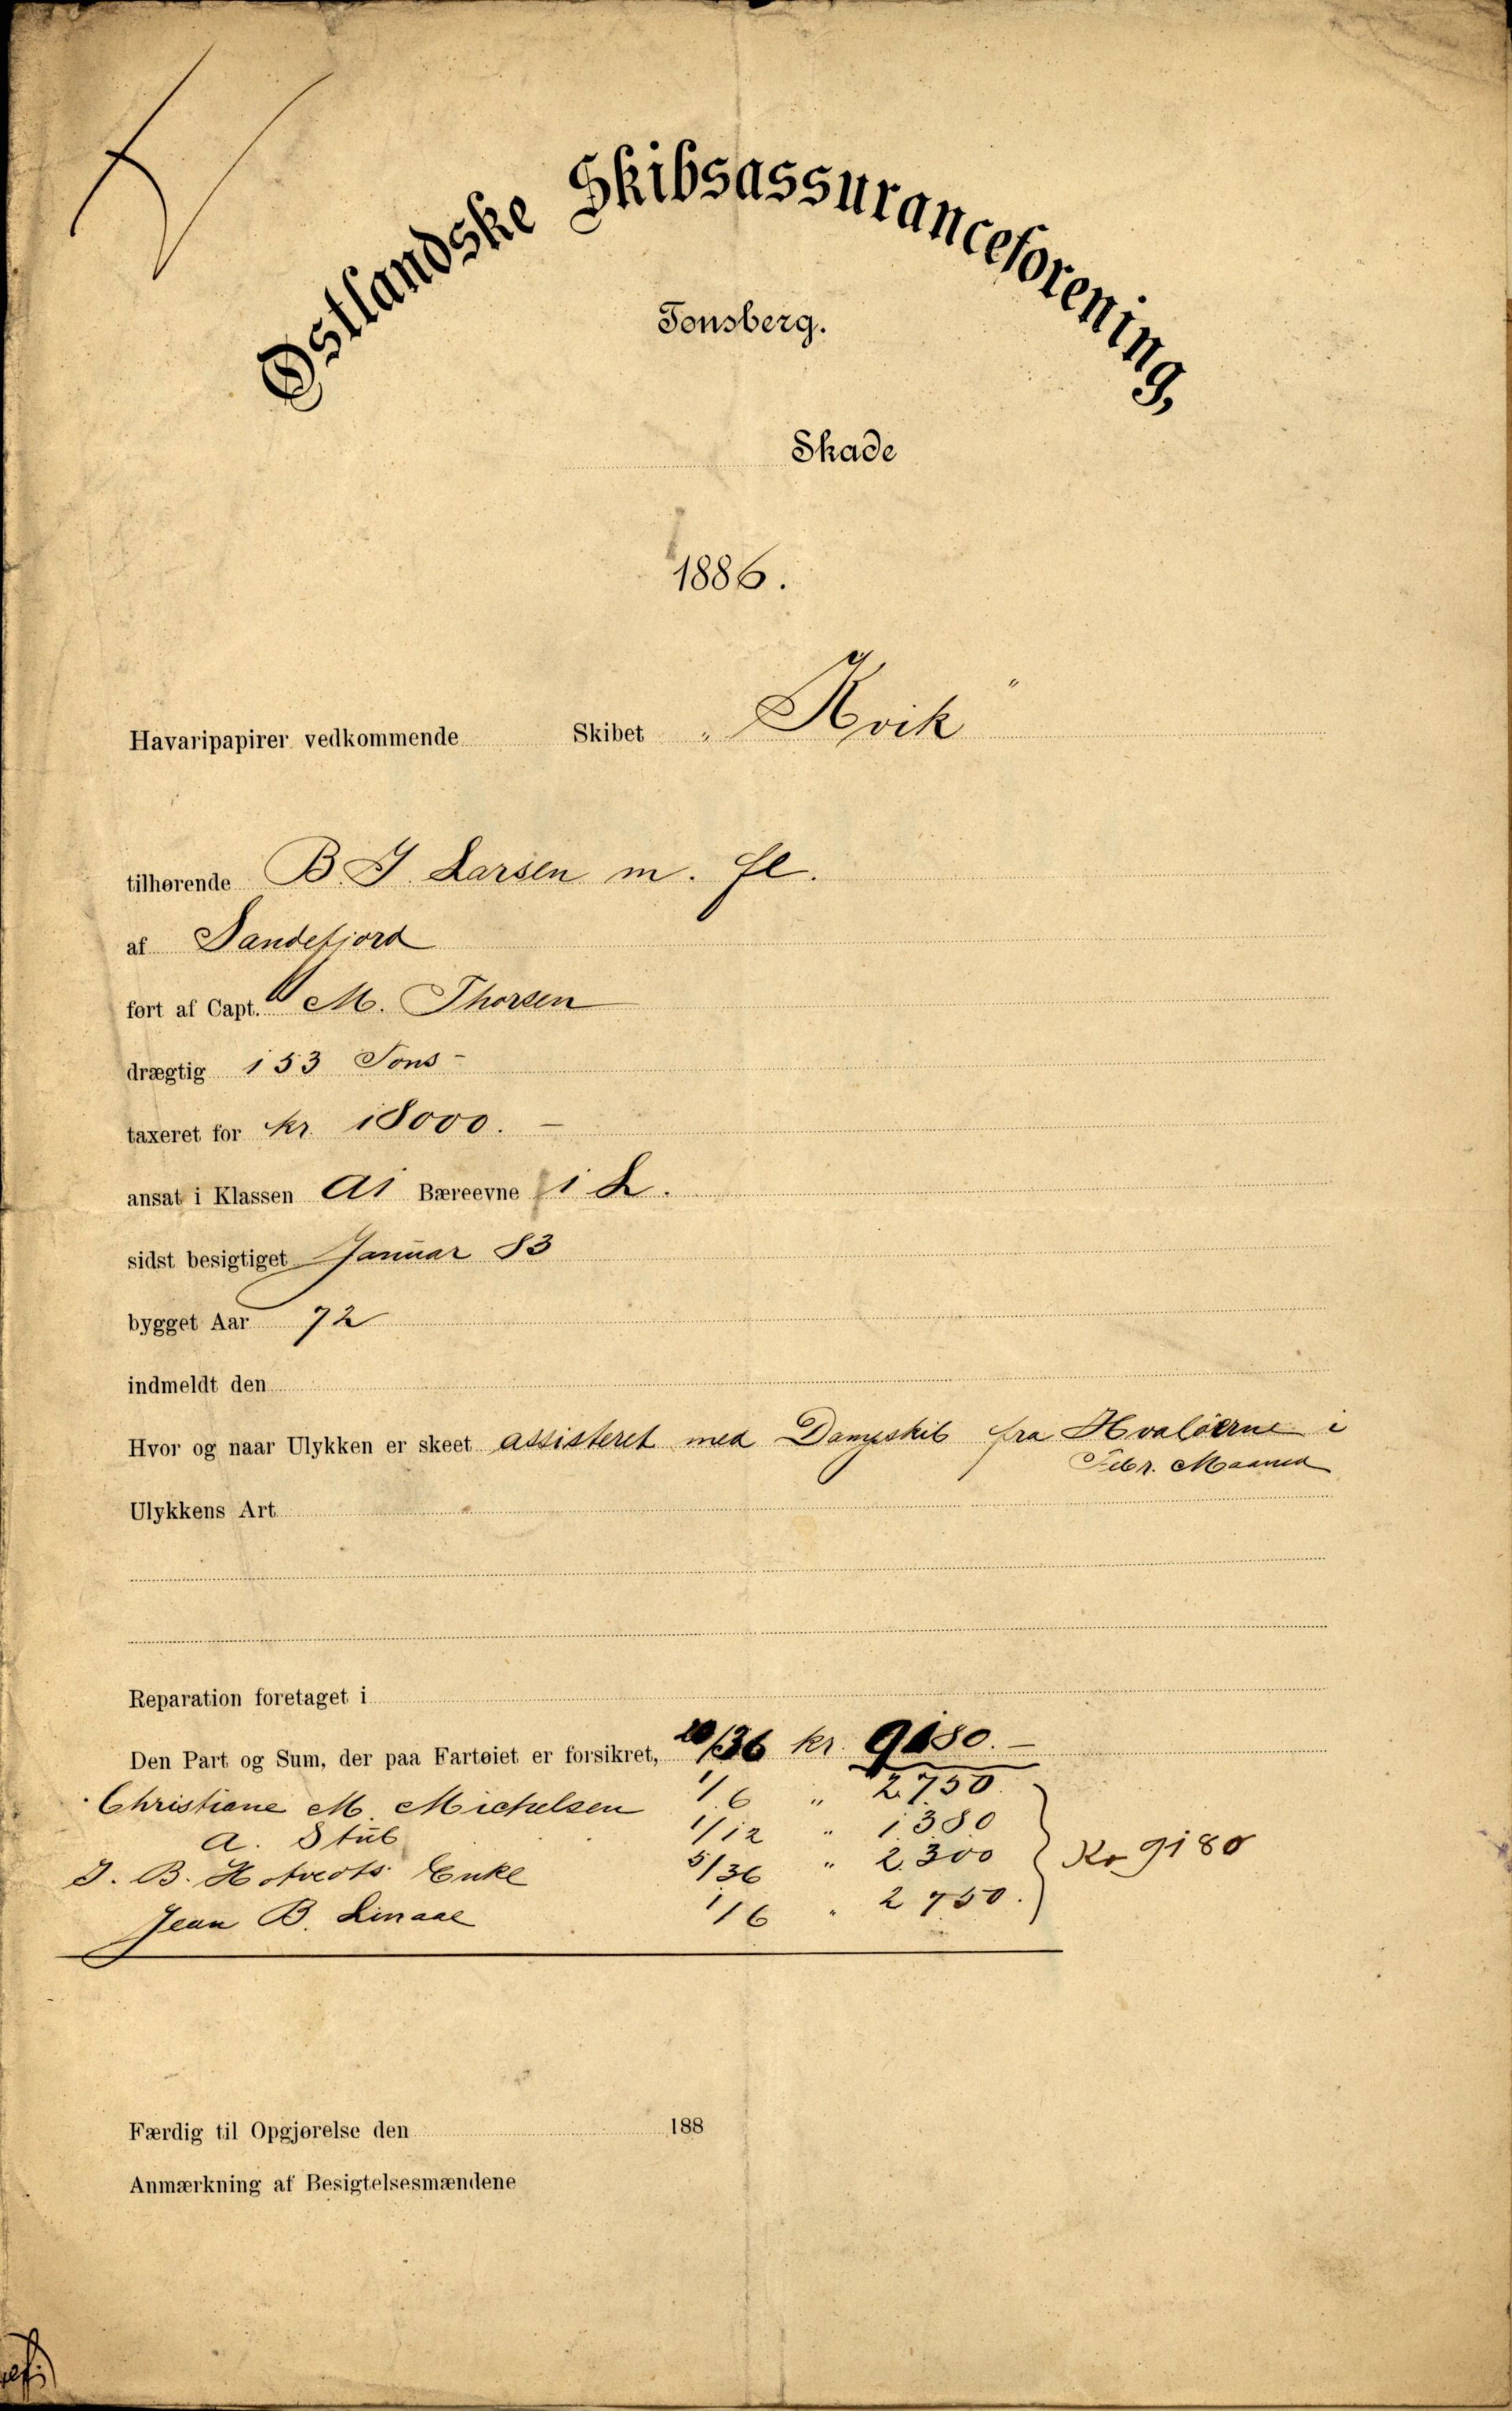 Østlandske Skibsassuranceforening,
Tønsberg.
Skade
1886.
Havaripapirer vedkommende Skibet „Kvik"
tilhørende B. J. Larsen m. fl.
af Sandefjord
ført af Capt. M. Thorsen
drægtig 153 Tons -
taxeret for kr. 18000. —
ansat i Klassen A1 Bæreevne 1 L.
sidst besigtiget Januar 83
bygget Aar 72
indmeldt den
Hvor og naar Ulykken er skeet assisteret med Dampskib fra Hvaløerne i
Febr. Maaned
Ulykkens Art
Reparation foretaget i
Den Part og Sum, der paa Fartøiet er forsikret, 20/36 kr. 9180. —
Christiane M. Michelsen 1/6 " 2750.
A. Stub 1/12 " 1380
J. B. Hotvedts Enke 5/36 " 2300 Kr 9180
Jean B. Linaae 1/6 " 2750.
Færdig til Opgjørelse den 188
Anmærkning af Besigtelsesmændene